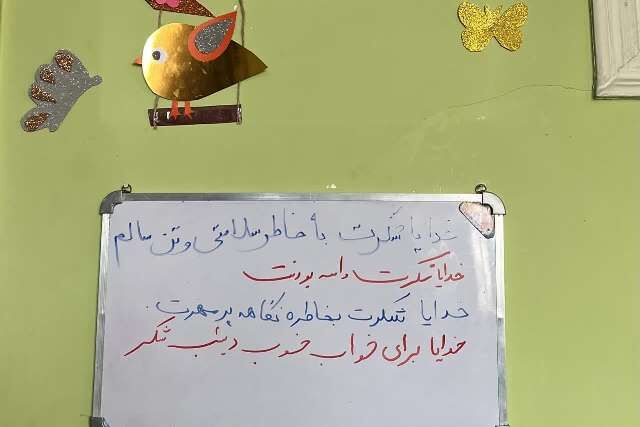 خدایا شکرت بخاطر سلامتی و تن سالم
خدایا شکرت واسه بودنت
خدایا شکرت بخاطره نگاهه پر مهرت.
خدایا برای خواب خوب دیشب شکر